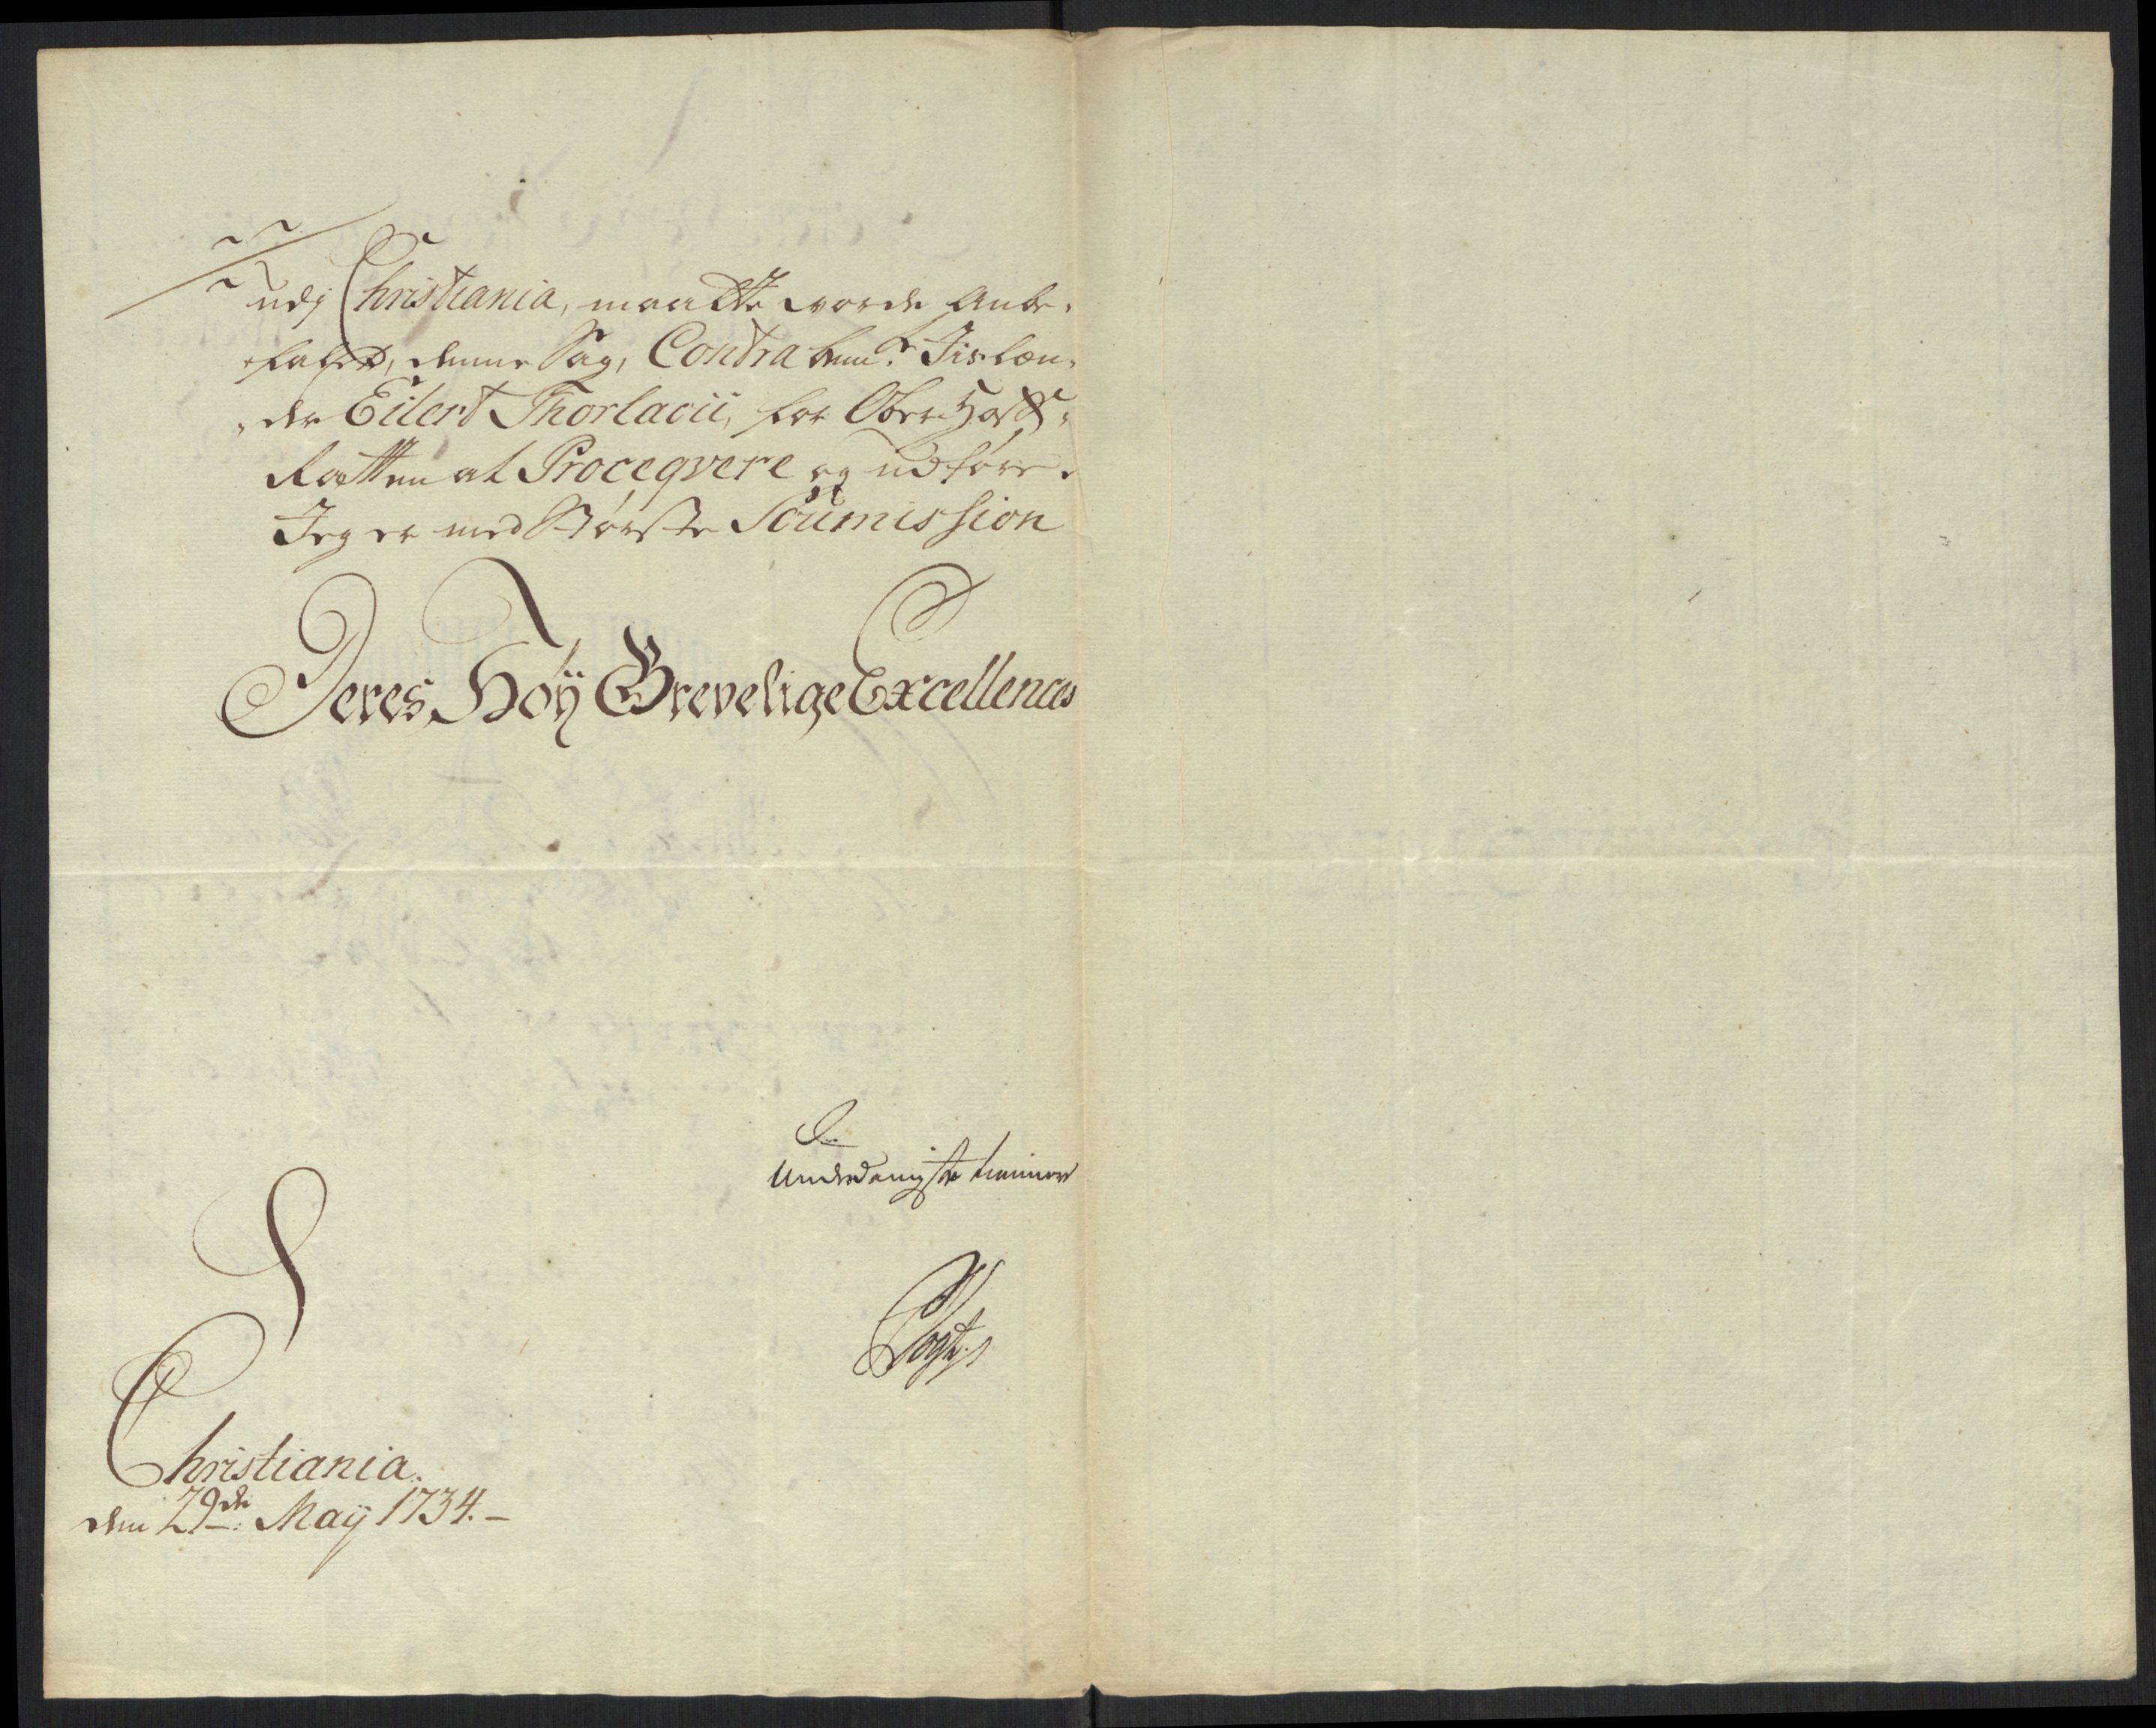 udj Christiania, maatte vorde Anbe-
-falet, denne Sag, Contra bem.te Jislæn-
-der Eilert Thorlacii, for Ober-Hoff-
Rætten at Proceqvere og udføre.
Jeg er med Største Soumission
Deres Høÿ Grevelige Excellences
Underdanigste tienner
Christiania.
den 29de: Maÿ 1734.-